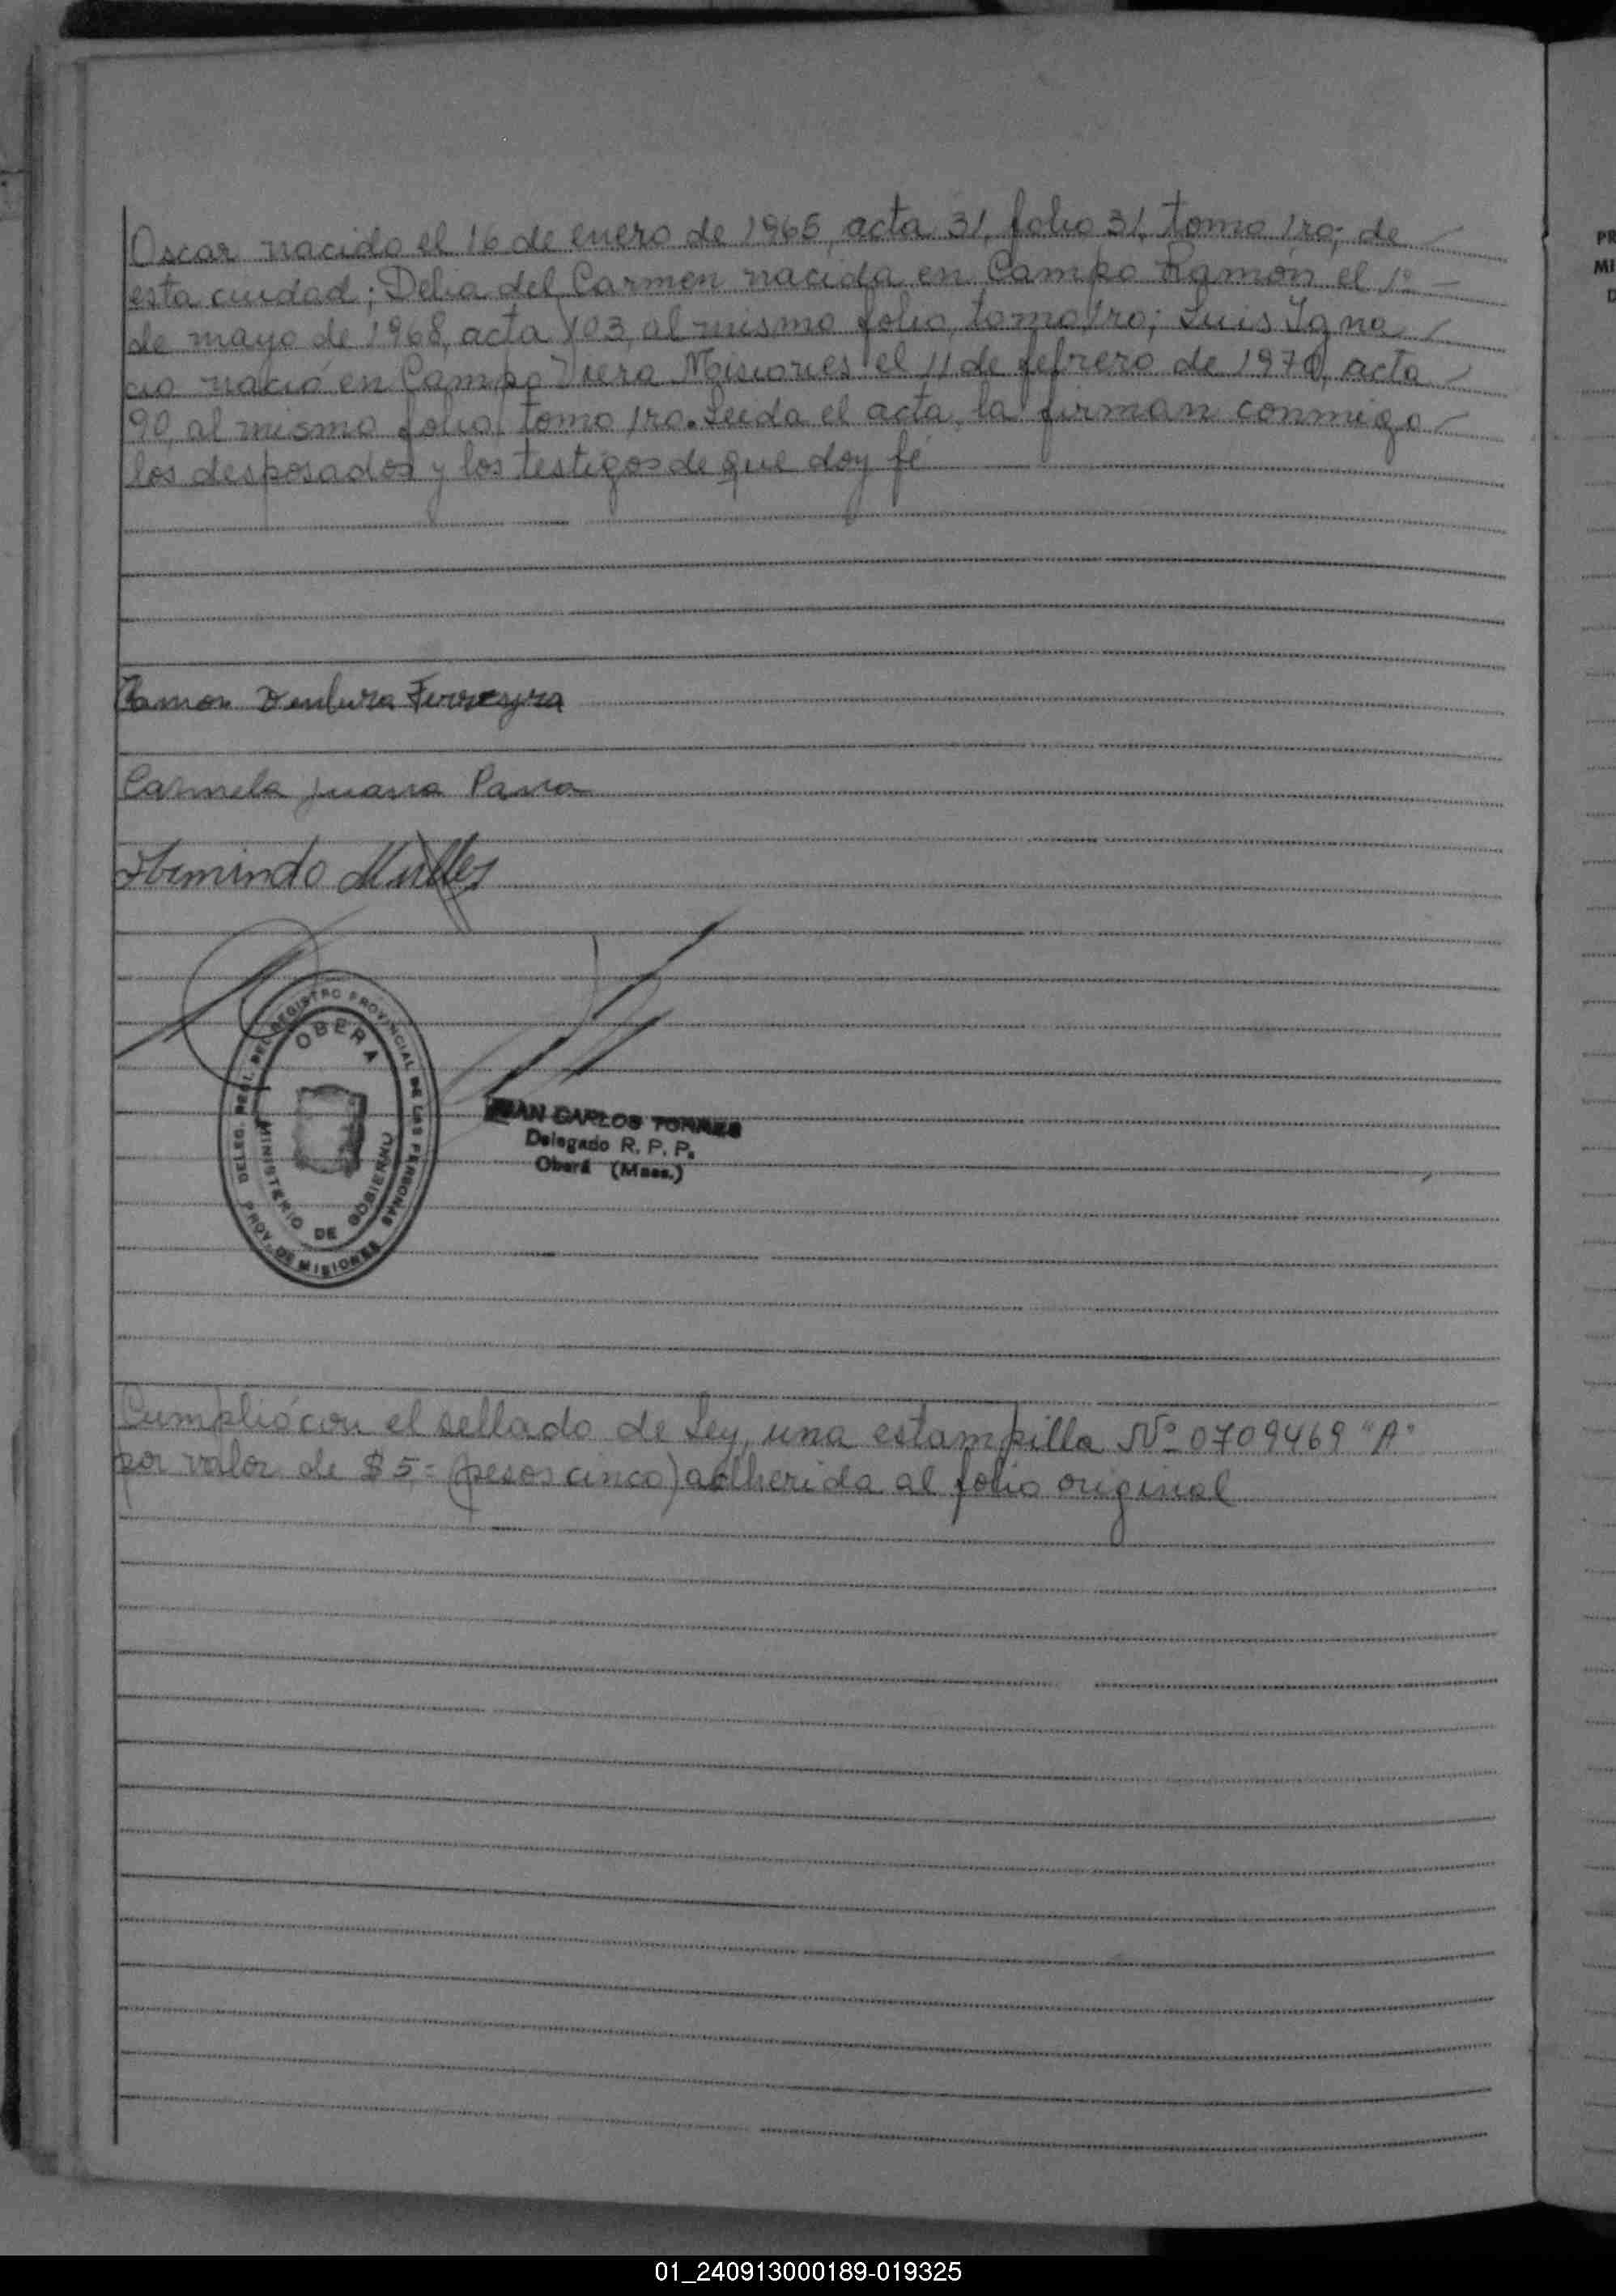 Oscar nacido el 16 de enero de 1965, acta 31, folio 31, tomo 1ro; de
esta ciudad; Delia del Carmen nacida en Campo Ramón el 1º
de mayo de 1968, acta 103, al mismo folio, tomo 1ro; Luis Igna
cio nació en Campo Viera Misiones el 11 de febrero de 1970, acta
90, al mismo folio, tomo 1ro. Leida el acta, la firman conmigo
los desposados y los testigos de que doy fé
Ramon Ventura Ferreyra
Carmela Juana Paiva
DELEG. REGI. DEL REGISTRO PROVINCIAL DE LAS PERSONAS
OBERA
MINISTERIO DE GOBIERNO
PROV. DE MISIONES
JUAN CARLOS TORRES
Delegado R. P. P.
Oberá (Mnes.)
Cumplió con el sellado de Ley, una estampilla Nº 0709469 "A"
por valor de $ 5,= (pesos cinco) adherida al folio original
PR
MI
D
01_240913000189-019325